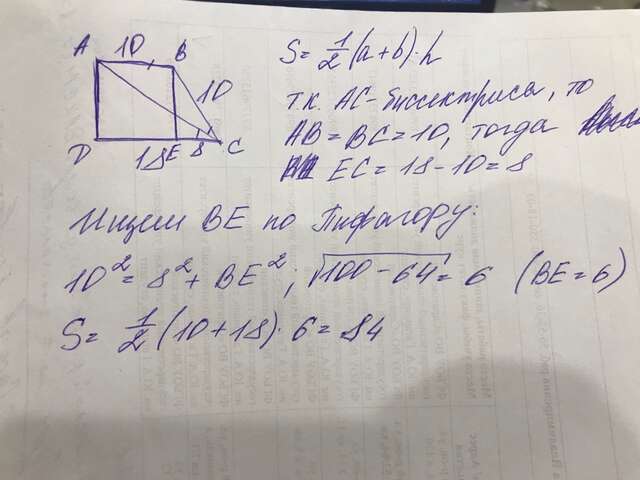 A 10 B
10
D 18 E 8 C
S = 1/2 (a + b) · h
т.к. AC - биссектриса, то
AB = BC = 10, тогда
EC = 18 - 10 = 8
Ищем BE по Пифагору:
10² = 8² + BE²; √100 - 64 = 6 (BE = 6)
S = 1/2 (10 + 18) · 6 = 84